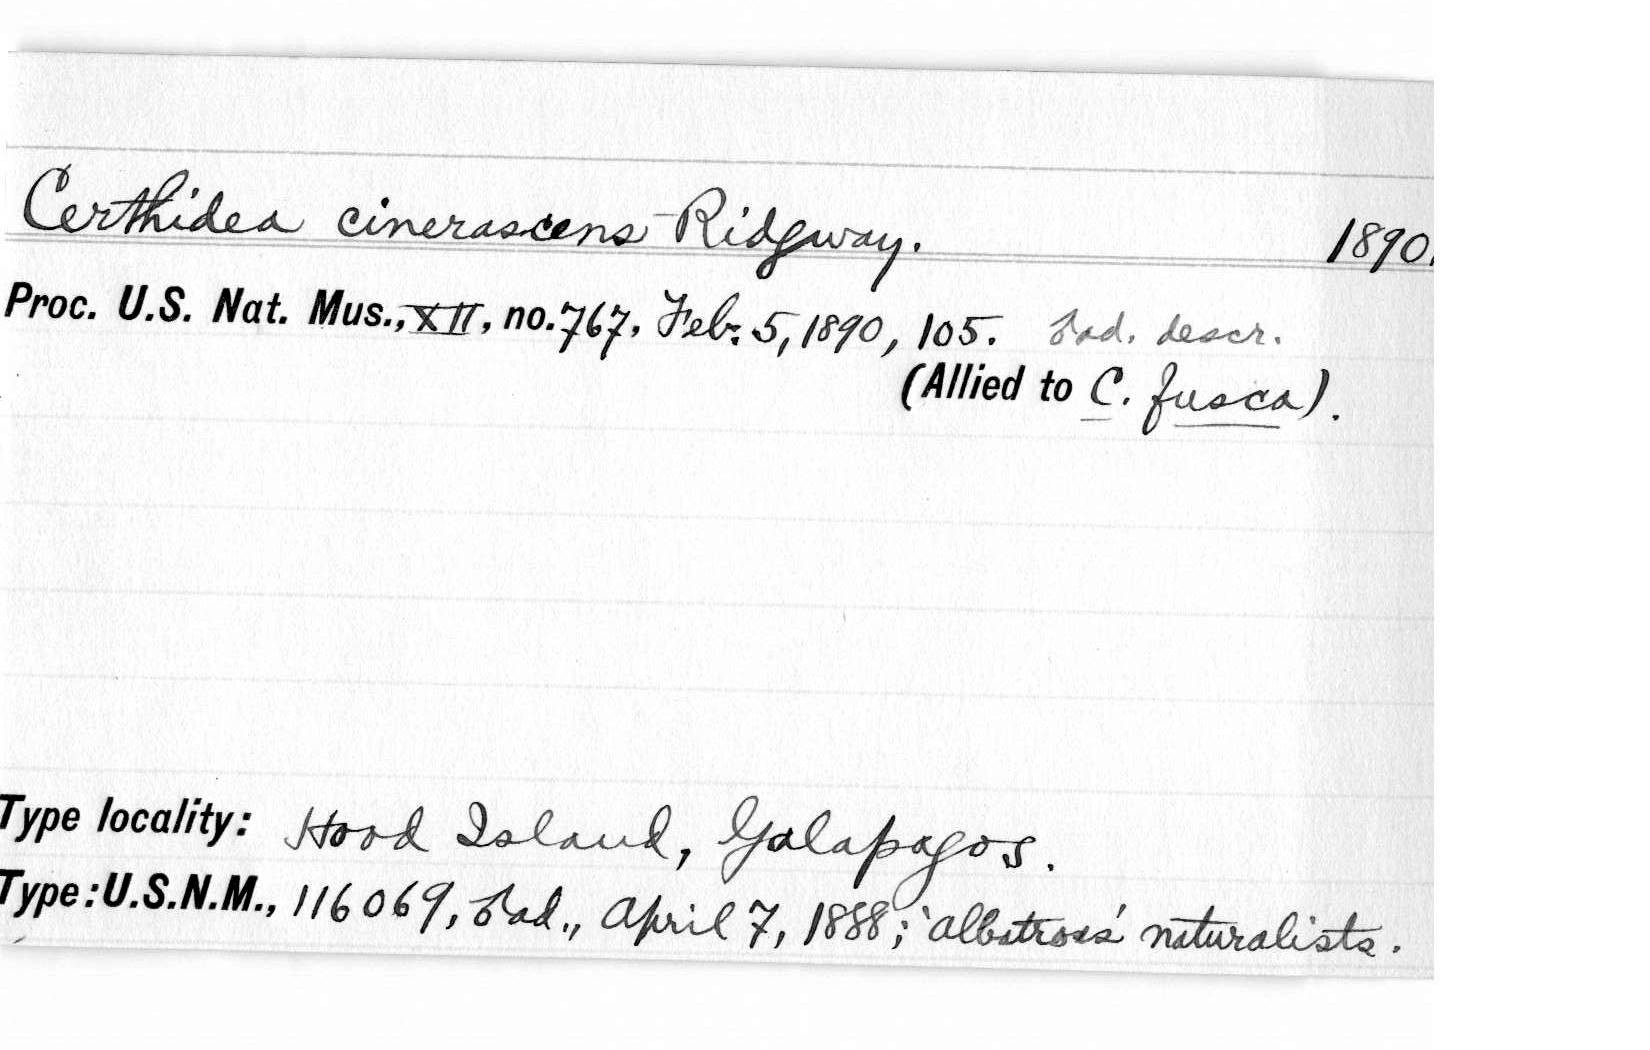 Certhidea cinerascens Ridgway. 1890.
Proc. U.S. Nat. Mus., XII, no. 767, Feb. 5, 1890, 105. ♂ad. descr.
(Allied to C. fusca).
Type locality: Hood Island, Galapagos.
Type: U.S.N.M., 116069, ♂ad., April 7, 1888; 'Albatross' naturalists.